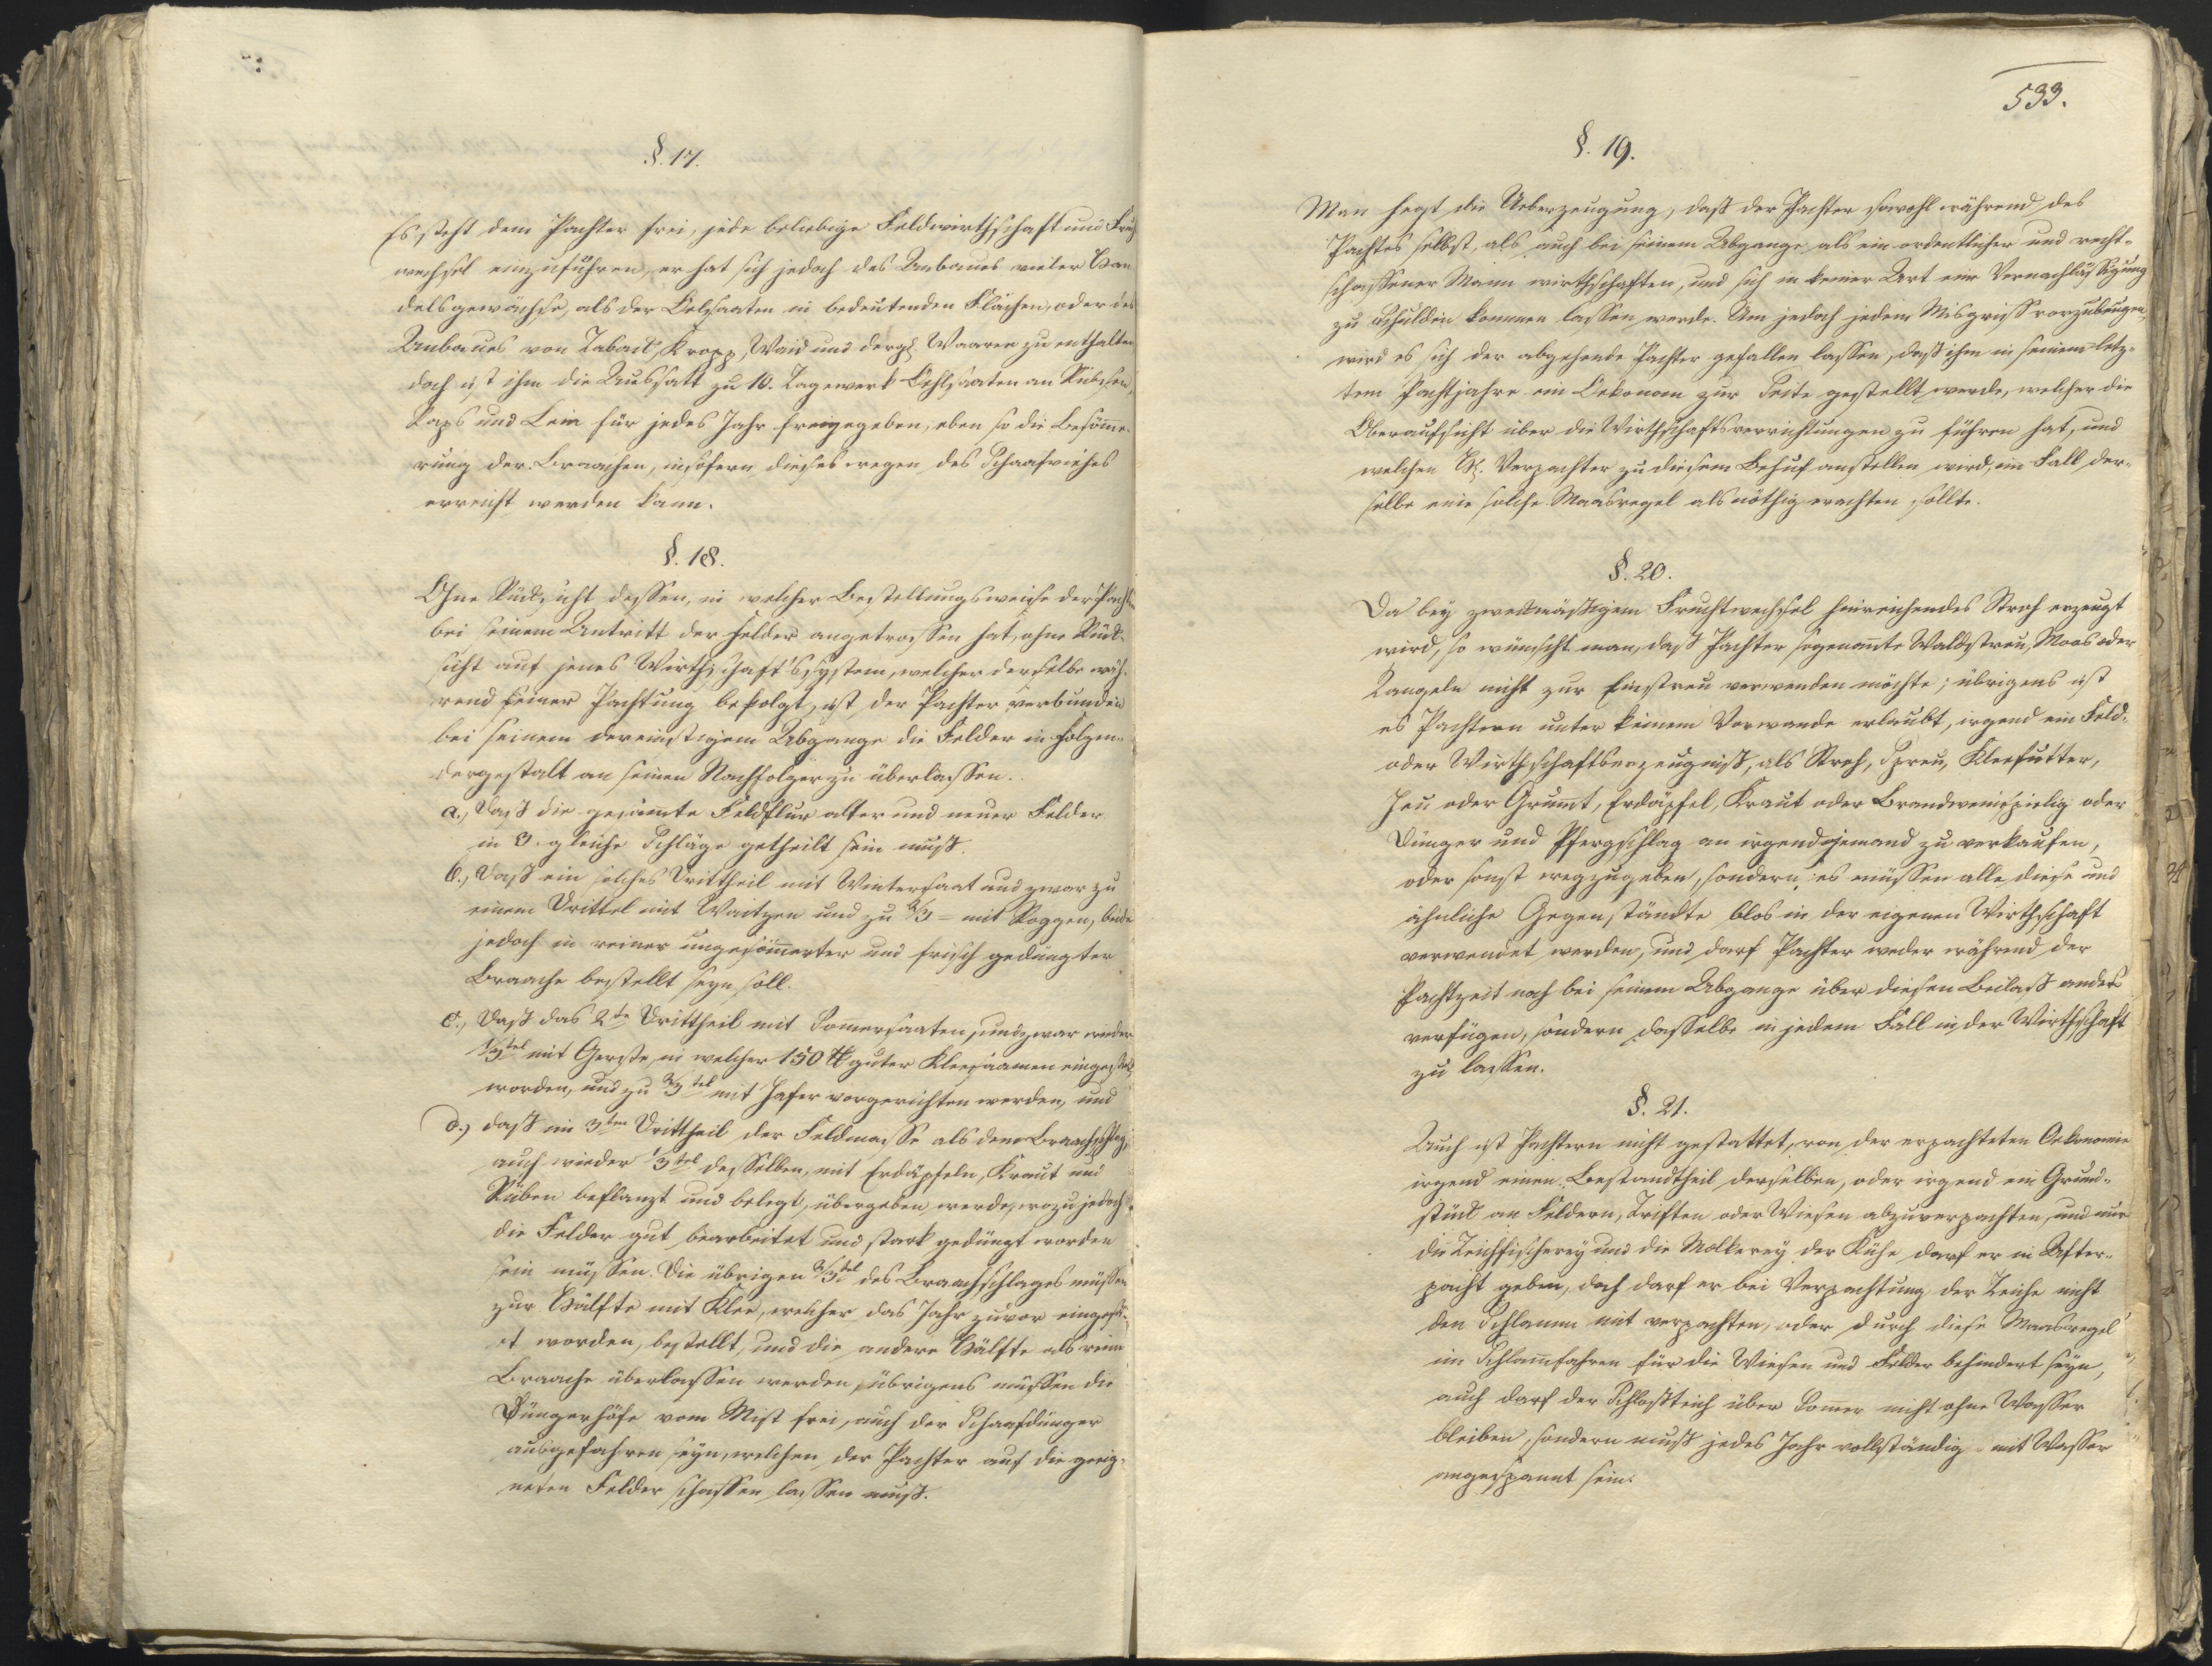 §. 17.
Es steht dem Pachter frei, jede beliebige Feldwirthschaft und Fruch
wechsel einzuführen, er hat sich jedoch des Anbaues vieler Han
delsgewächse, als der Oelsaaten in bedeutenden Flächen, oder des
Anbaues von Taback, Krapp, Waid und dergl. Waaren zu enthalten
doch ist ihm die Aussatt zu 10. Tagewerk Oehlsaaten an Rübsen,
Raps und Lein für jedes Jahr freigegeben, eben so die Besöme-
rung der Braachen, insofern dieses wegen des Schaafviehes
erreicht werden kann.
§. 18.
Ohne Rücksicht dessen, in welcher Bestellungsweise der Pacht
bei seinem Antritt der Felder angetroffen hat, ohne Rück-
sicht auf jenes Wirthschaft's system, welcher derselbe wäh-
rend seiner Pachtung befolgt, ist der Pachter verbunden
bei seinem dereinstigem Abgange die Felder in folgen-
dergestalt an seinen Nachfolger zu überlassen.
a., Daß die gesamte Feldflur alter und neuer Felder
in 3. gleiche Schläge getheilt sein muß.
b., Daß ein solches Drittheil mit Wintersaat und zwar zu
einem Drittel mit Waitzen und zu 2/3 - mit Roggen, beide
jedoch in reiner ungesömerter und frisch gedüngter
Braache bestellt seyn soll.
c., Daß das 2te Drittheil mit Somersaaten, und zwar wieder
1/3tel mit Gerste, in welcher 150 ℔ guter Kleesaamen
worden, und zu 2/3tel mit Hafer vorgerichten werden, und
d., daß im 3ten Drittheil der Feldmasse als dem Braachschlag,
auch wieder 1/3tel desselben, mit Erdäpfeln, Kraut und
Rüben beflanzt und belegt, übergeben werde, wozu jedoch
die Felder gut bearbeitet und stark gedüngt worden
sein müssen. Die übrigen 2/3tel des Braachschlages müssen
zur Hälfte mit Klee, welcher das Jahr zuvor eingesä-
et worden, bestellt, und die andere Hälfte als reine
Braache überlassen werden, übrigens müssen die
Düngerhöfe vom Mist frei, auch der Schaafdünger
ausgefahren seyn, welchen der Pachter auf die geeig-
neten Felder schaffen lassen muß.
533.
§. 19.
Man hegt die Ueberzeugung, daß der Pachter sowohl während des
Pachtes selbst, als auch bei seinem Abgange als ein ordentlicher und recht-
schaffener Mann wirthschaften, und sich in keiner Art eine Vernachlässigung
zu schulden kommen lassen werde. Um jedoch jedem Misgriff vorzubeugen,
wird es sich der abgehende Pachter gefallen lassen, daß ihm in seinem letz-
tem Pachtjahre ein Oekonom zur Seite gestellt werde, welcher die
Oberaufsicht über die Wirthschaftsverrichtungen zu führen hat, und
welchen H. Verpachter zu diesem Behuf anstellen wird, im Fall der-
selbe eine solche Maasregel als nöthig erachten sollte.
§. 20.
Da bey zweckmäßigem Fruchtwechsel hinreichendes Stroh erzeugt
wird, so wünscht man, daß Pachter sogenante Waldstreu, Moos oder
Tangeln nicht zur Einstreu verwenden möchte; übrigens ist
es Pachtern unter keinem Vorwande erlaubt, irgend ein Feld-
oder Wirthschaftserzeugniß, als Stroh, Spreu, Kleefutter,
Heu oder Grumt, Erdäpfel, Kraut oder Brandweinspielig oder
Dünger und Pfergschlag an irgend jemand zu verkaufen,
oder sonst wegzugeben, sondern es müssen alle diese und
ähnliche Gegenständte blos in der eigenen Wirthschaft
verwendet werden, und darf Pachter weder während der
Pachtzeit noch bei seinem Abgange über diesen Beilaß anders
verfügen, sondern dasselbe in jedem Fall in der Wirthschaft
zu lassen.
§. 21.
Auch ist Pachtern nicht gestattet, von der erpachteten Oekonomie
irgend einen Bestandtheil derselben, oder irgend ein Grund-
stück an Feldern, Triften oder Wiesen abzuverpachten, und nur
die Teichfischerey und die Molkerey der Kühe darf er in After-
pacht geben, doch darf er bei Verpachtung der Teiche nicht
den Schlamm mit verpachten, oder durch diese Maasregel
im Schlamfahren für die Wiesen und Felder behindert seyn,
auch darf der Schloßteich über Somer nicht ohne Wasser
bleiben, sondern muß jedes Jahr vollständig mit Wasser
angespannt sein.